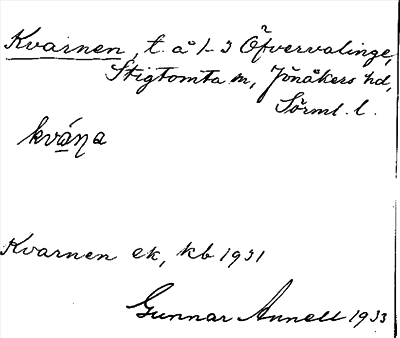 Kvarnen, t. å 1-3 Öfvervalinge,
Stigtomta sn, Jönåkers hd,
Sörml. l.
kvạ́ṇa
Kvarnen ek, kb 1931
Gunnar Annell 1933